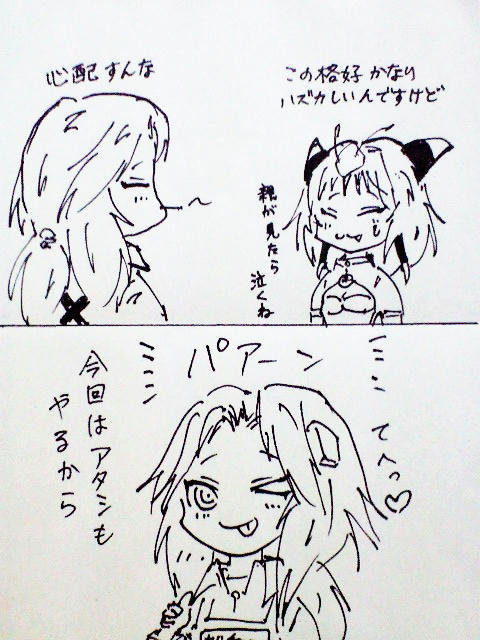 この格好かなり
ハズカしいんですけど
親が見たら
泣くね
心配すんな
パアーン
てへっ♡
今回はアタシも
やるから